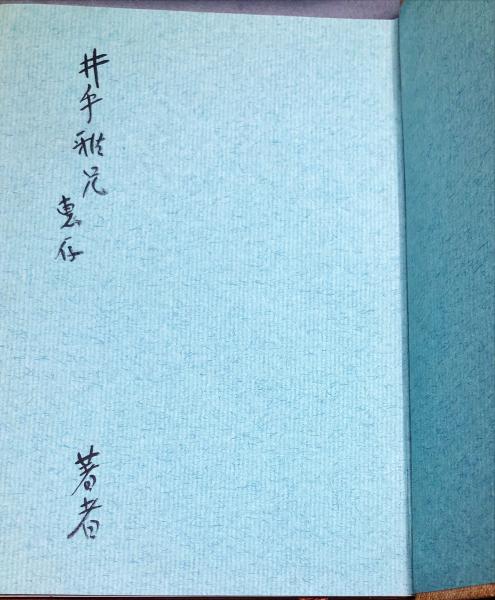 井手雅兄
惠存
著者